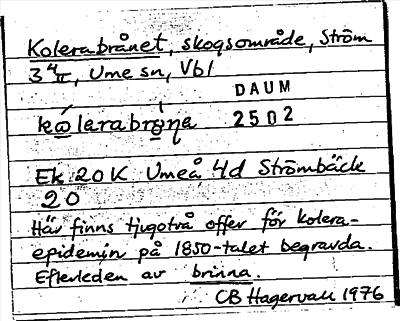 Kolerabrånet, skogsområde, Ström
3 4/II, Ume sn, Vbl
DAUM
2502
Ek 20K Umeå 4d Strömbäck
20
Här finns tjugotvå offer för kolera-
epidemin på 1850-talet begravda.
Efterleden av brinna.
CB Hagervall 1976